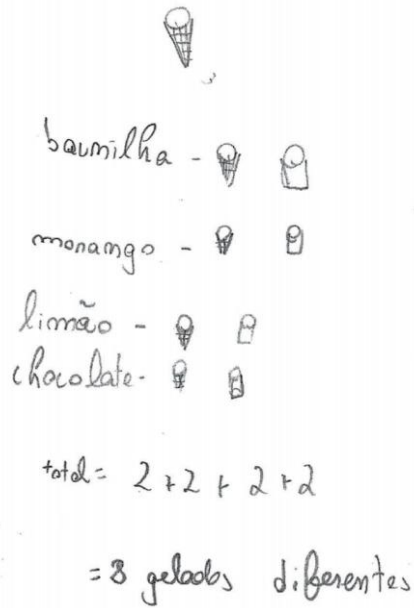 baunilha -
morango -
limão -
chocolate -
total = 2 + 2 + 2 + 2
= 8 gelados diferentes